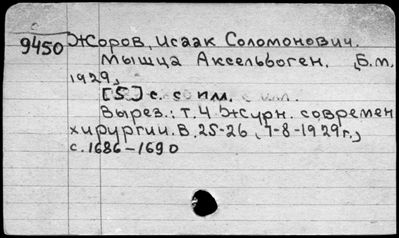 9450 Жоров, Исаак Соломонович.
Мышца Аксельвоген. Б.м.
1929,
[5] с. с илл.
Вырез.: т. Ч. Журн. современ
хирургии. В. 25-26, 7-8-1929г.,
с. 1686-1690